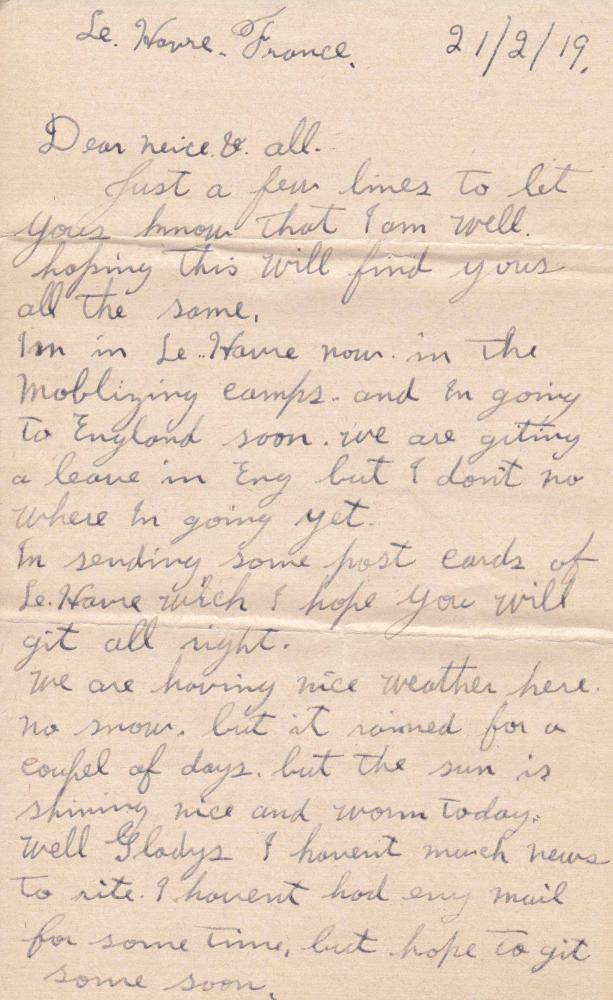 Le. Havre. France.
21/2/19.
Dear neice. & all.
Just a few lines to let
yous know that I am well.
hoping this will find yous
all the same.
Im in Le. Havre now. in the
Moblizing camps. and Im going
to England soon. we are giting
a leave in Eng but I don't no
where Im going yet.
Im sending some post cards of
Le. Havre wich I hope you will
git all right.
We are having nice weather here.
no snow. but it rained for a
coupel of days. but the sun is
shining nice and worm today.
Well Gladys I havent much news
to rite. I havent had eny mail
for some time, but hope to git
some soon.